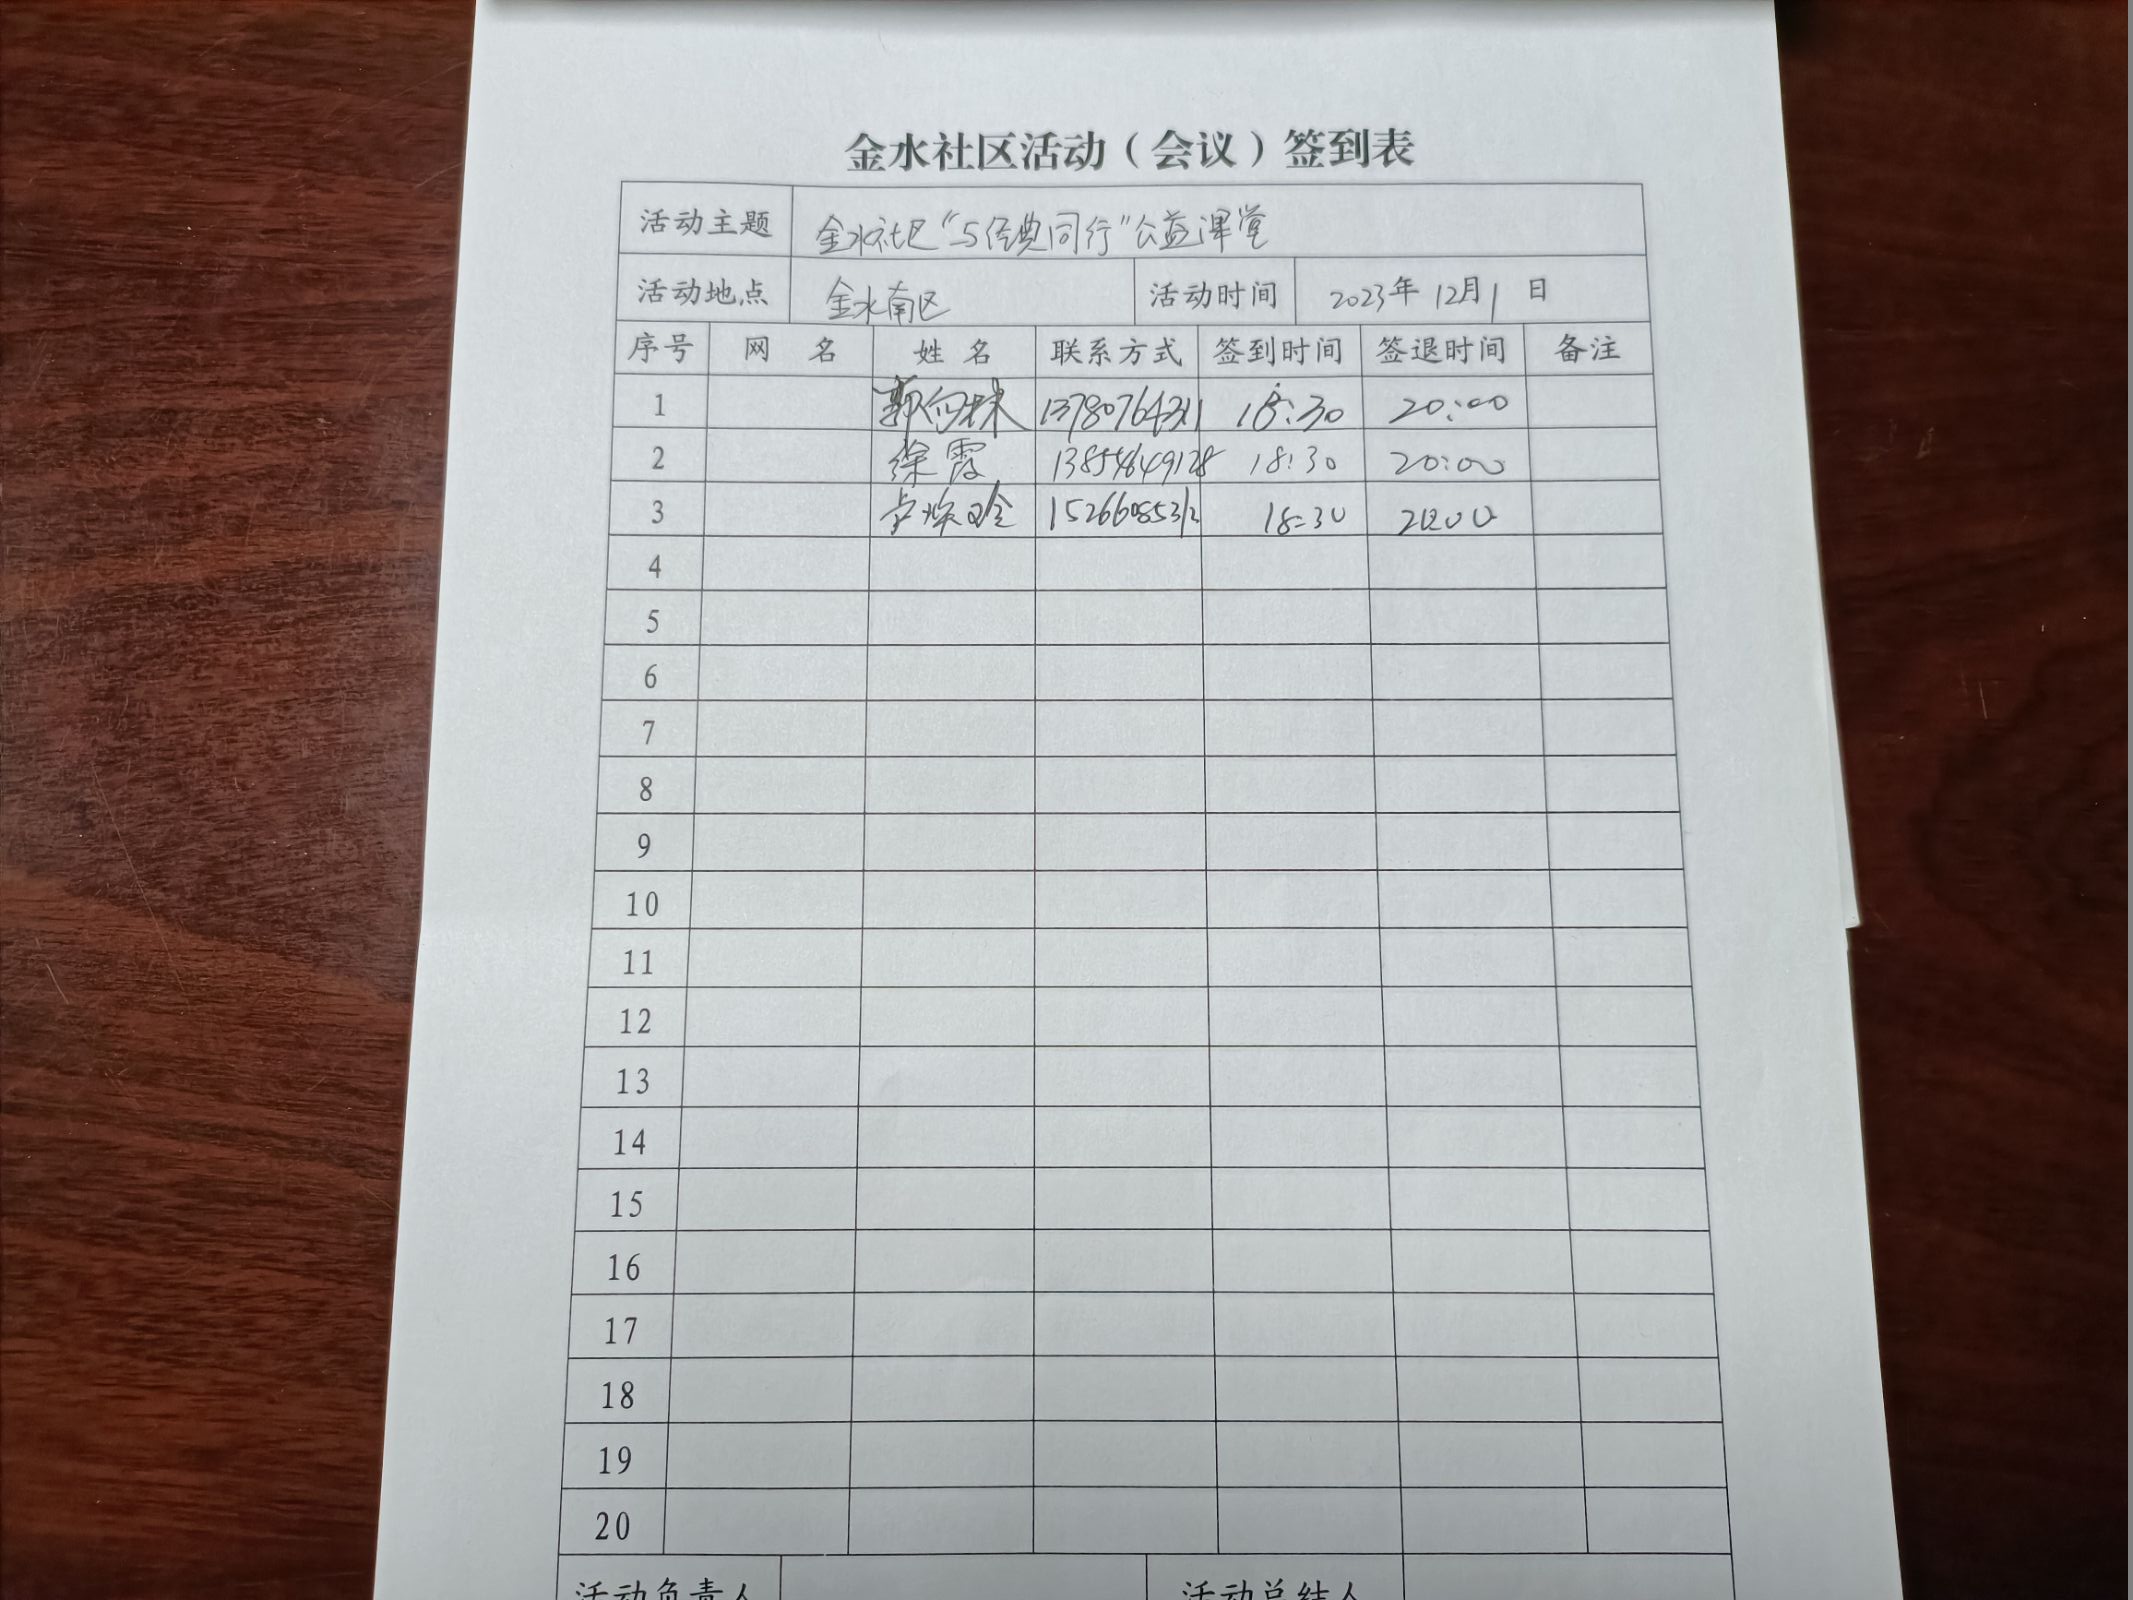 金水社区活动（会议）签到表
活动主题 金水社区“与经典同行”公益课堂
活动地点 金水南区 活动时间 2023年 12月1日
序号 网名 姓名 联系方式 签到时间 签退时间 备注
1 18:30 20:00
2 徐霞 13854649128 18:30 20:00
3 18:30 20:00
4
5
6
7
8
9
10
11
12
13
14
15
16
17
18
19
20
活动负责人 活动总结人